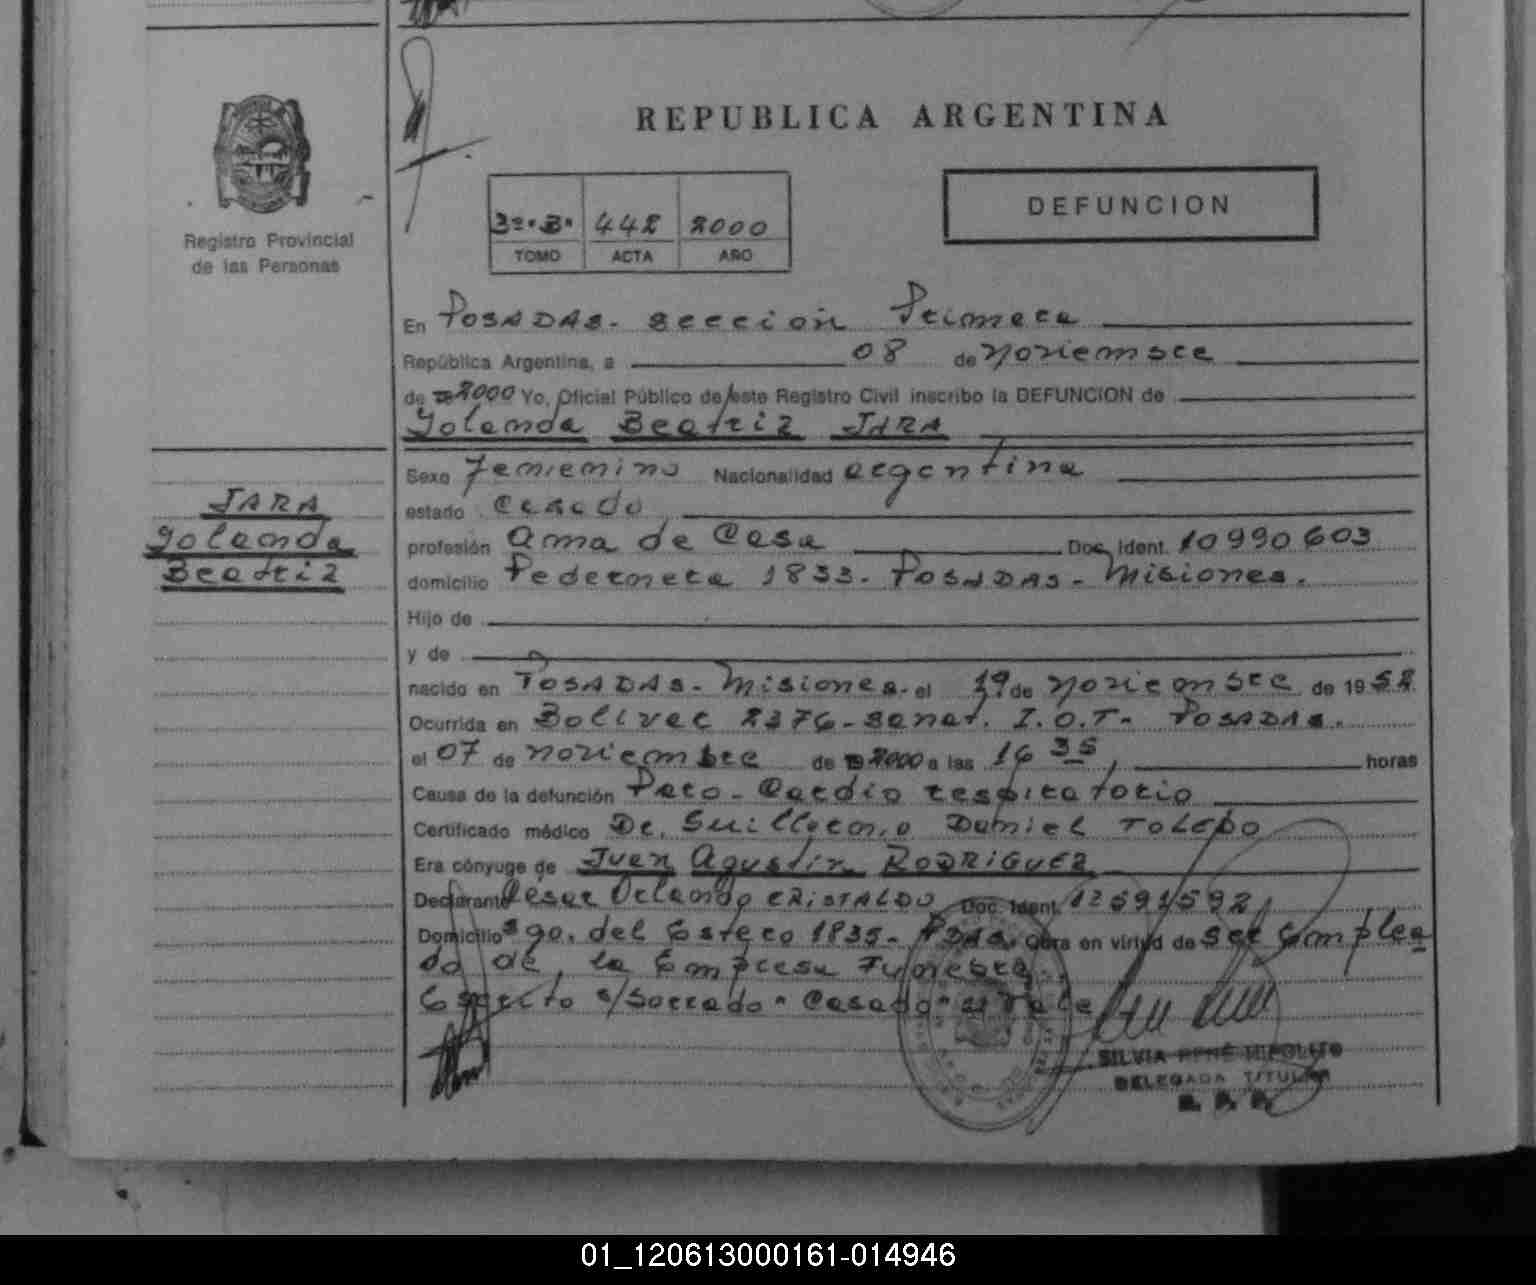 REPUBLICA ARGENTINA
Registro Provincial
de las Personas
3º.B. 442 2000
TOMO ACTA AÑO
DEFUNCION
En POSADAS. seccion Primera
República Argentina, a 08 de Noviembre
de 2000 Yo, Oficial Público de este Registro Civil inscribo la DEFUNCION de
Yolanda Beatriz JARA
Sexo Femenino Nacionalidad argentina
estado casado
JARA
Yolanda
Beatriz
profesión ama de Casa Doc. Ident. 10990603
domicilio Pedernera 1833. POSADAS. Misiones.
Hijo de
y de
nacido en POSADAS. Misiones. el 19 de Noviembre de 1952
Ocurrida en Bolivar 2376 - sanat. I.O.T. POSADAS.
el 07 de noviembre de 2000 a las 16 35 horas
Causa de la defunción Paro - Cardio respiratorio
Certificado médico Dr. Guillermo Daniel TOLEDO
Era cónyuge de Juan Agustin RODRIGUEZ
Declarante Cesar Orlando CRISTALDO Doc. Ident. 12591592
Domicilio Sgo. del Estero 1835. Pdas. Obra en virtud de ser emplea
do de la Empresa Funebre
Escrito s/Borrado "Casado" si Vale
SILVIA RENÉ HIPOLITO
DELEGADA TITULAR
R. P. P.
01_120613000161-014946